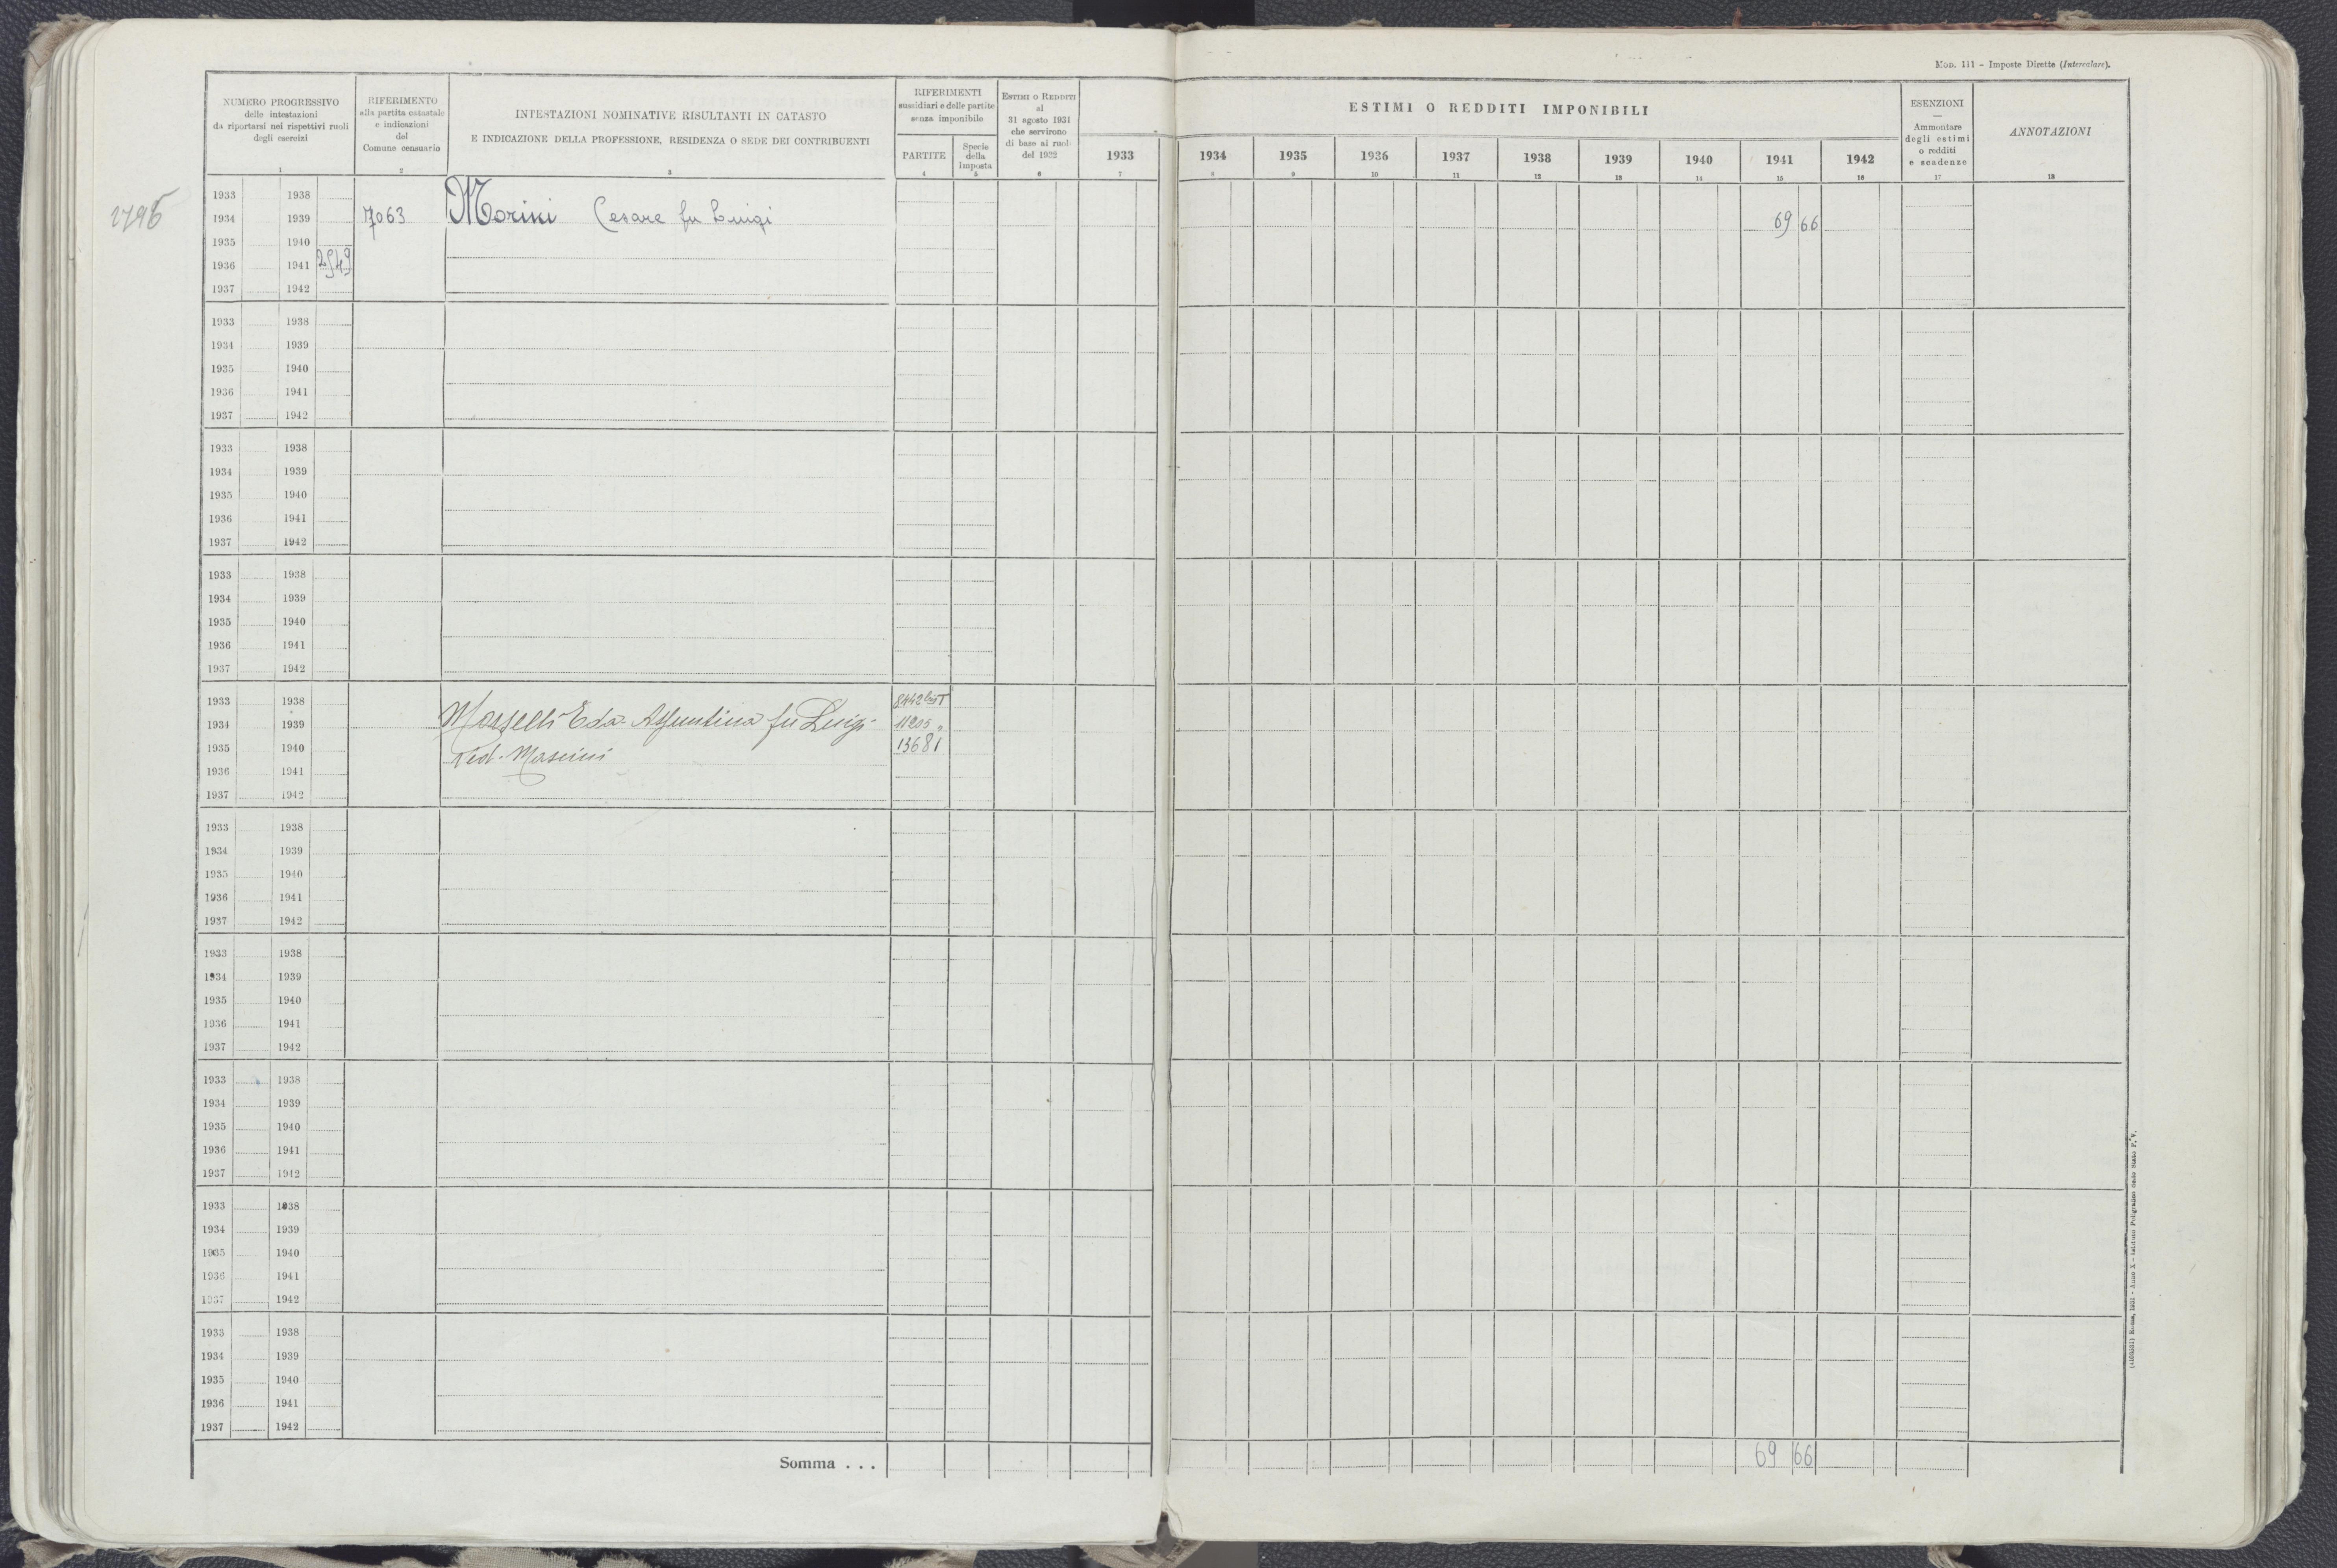 MOD. 111 – Imposte Dirette (Intercalare).
NUMERO PROGRESSIVO
delle intestazioni
da riportarsi nei rispettivi ruoli
degli esercizi
1
RIFERIMENTO
alla partita catastale
e indicazioni
del
Comune censuario
2
INTESTAZIONI NOMINATIVE RISULTANTI IN CATASTO
E INDICAZIONE DELLA PROFESSIONE, RESIDENZA O SEDE DEI CONTRIBUENTI
3
RIFERIMENTI
sussidiari e delle partite
senza imponibile
PARTITE
4
Specie
della
Imposta
5
ESTIMI O REDDITI
al
31 agosto 1931
che servirono
di base ai ruoli
del 1932
6
ESTIMI O REDDITI IMPONIBILI
1933 1934 1935 1936 1937 1938 1939 1940 1941 1942
7 8 9 10 11 12 13 14 15 16
ESENZIONI
—
Ammontare
degli estimi
o redditi
e scadenze
17
ANNOTAZIONI
18
1933 1938
2795 1934 1939 7063 Morini Cesare fu Luigi 69 66
1935 1940
1936 1941 2549
1937 1942
1933 1938
1934 1939
1935 1940
1936 1941
1937 1942
1933 1938
1934 1939
1935 1940
1936 1941
1937 1942
1933 1938
1934 1939
1935 1940
1936 1941
1937 1942
1933 1938
1934 1939 Eda Assuntina fu Luigi 11205 "
1935 1940 Ved. Mascini 13681
1936 1941
1937 1942
1933 1938
1934 1939
1935 1940
1936 1941
1937 1942
1933 1938
1934 1939
1935 1940
1936 1941
1937 1942
1933 1938
1934 1939
1935 1940
1936 1941
1937 1942
1933 1938
1934 1939
1935 1940
1936 1941
1937 1942
1933 1938
1934 1939
1935 1940
1936 1941
1937 1942
Somma . . . 69 66
Roma, 1931 - Anno X - Istituto Poligrafico dello Stato P. V.